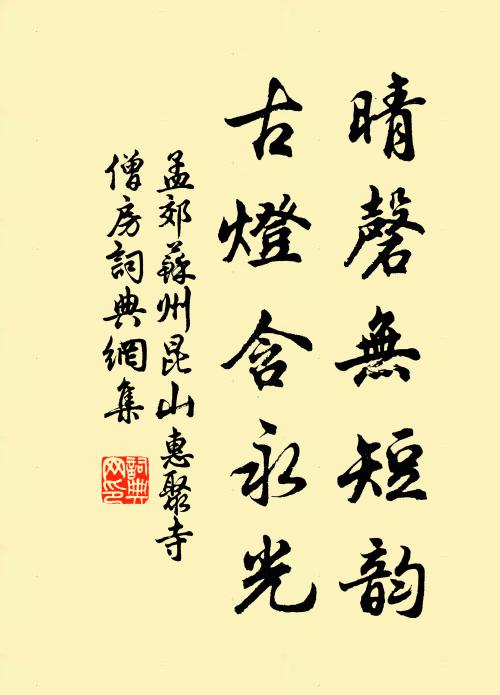 晴磬無短韵
古燈含永光
孟郊蘇州昆山惠聚寺
僧房詞典網集
詞典網印